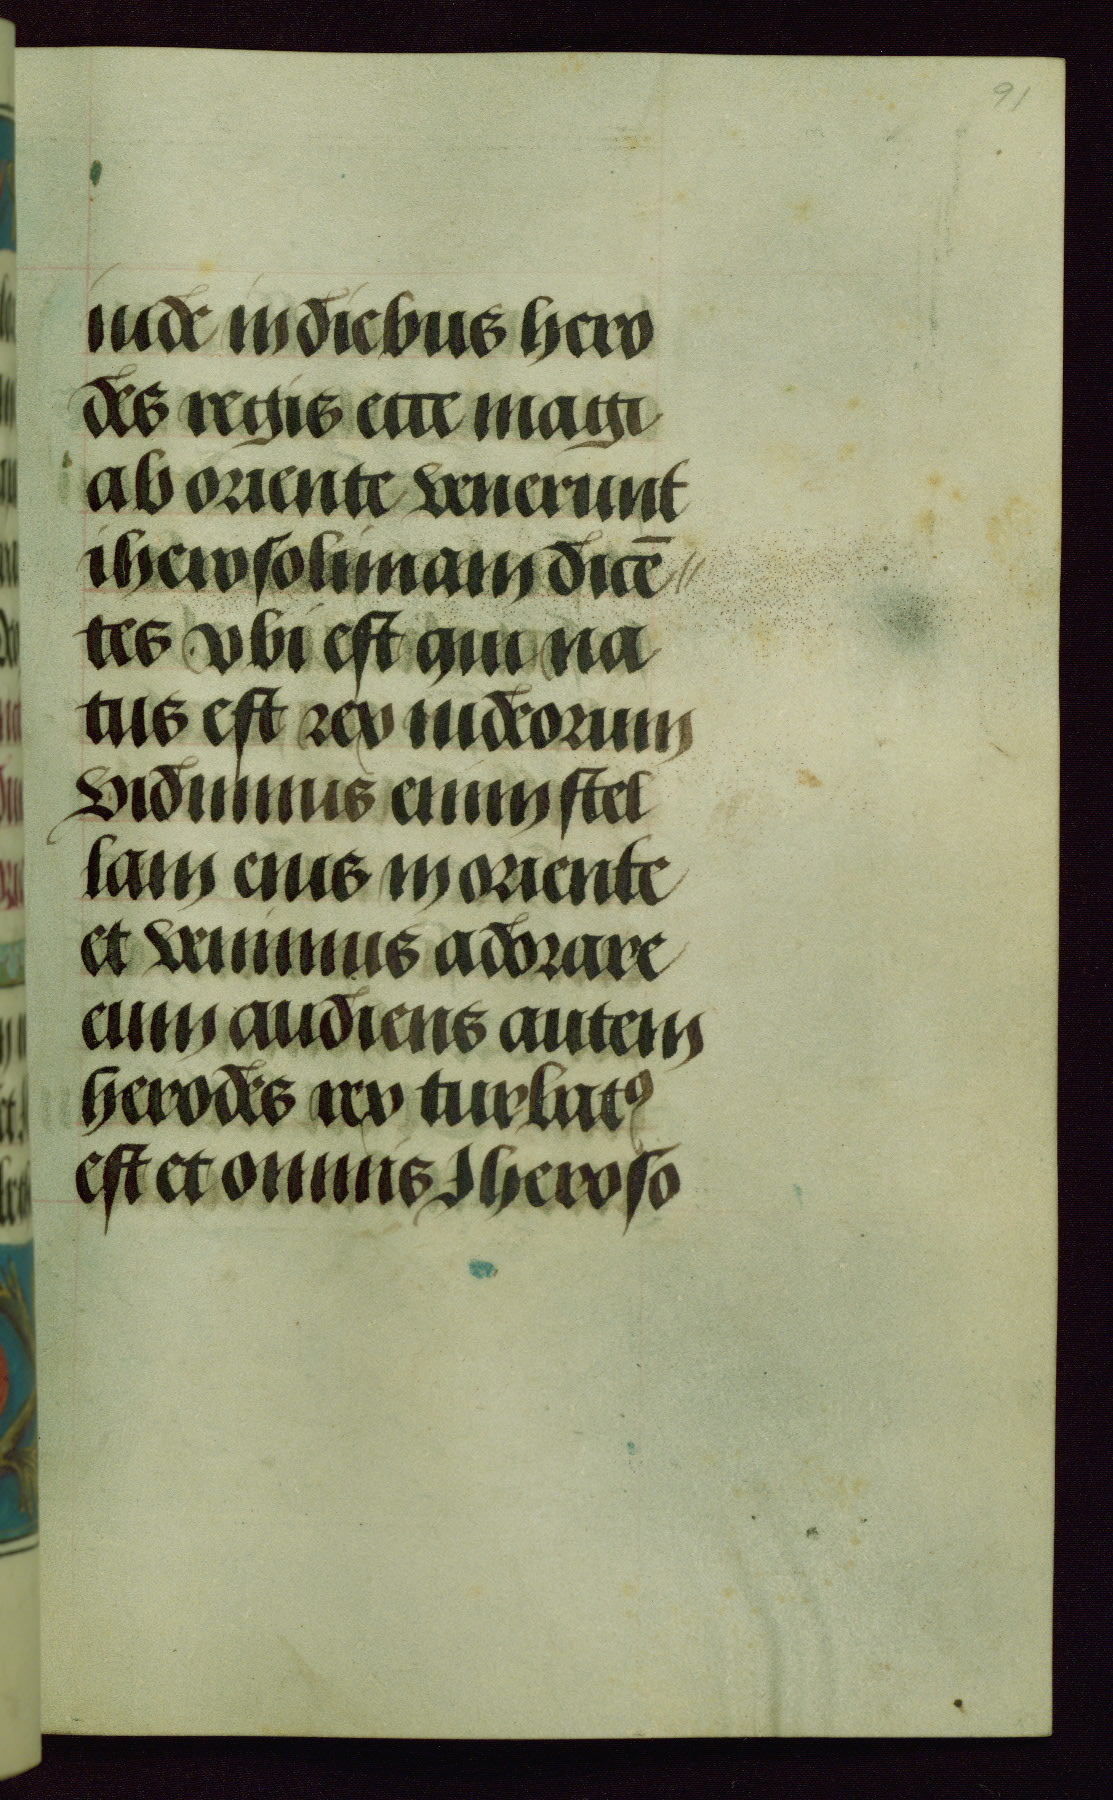 91
iude in diebus hero
des regis ecce magi
ab oriente venerunt
iherosolimam dicē//
tes vbi est qui na
tus est rex iudeorum
vidimus enim stel
lam eius in oriente
et venimus adorare
eum audiens autem
herodes rex turbatꝰ
est et omnis Iheroso